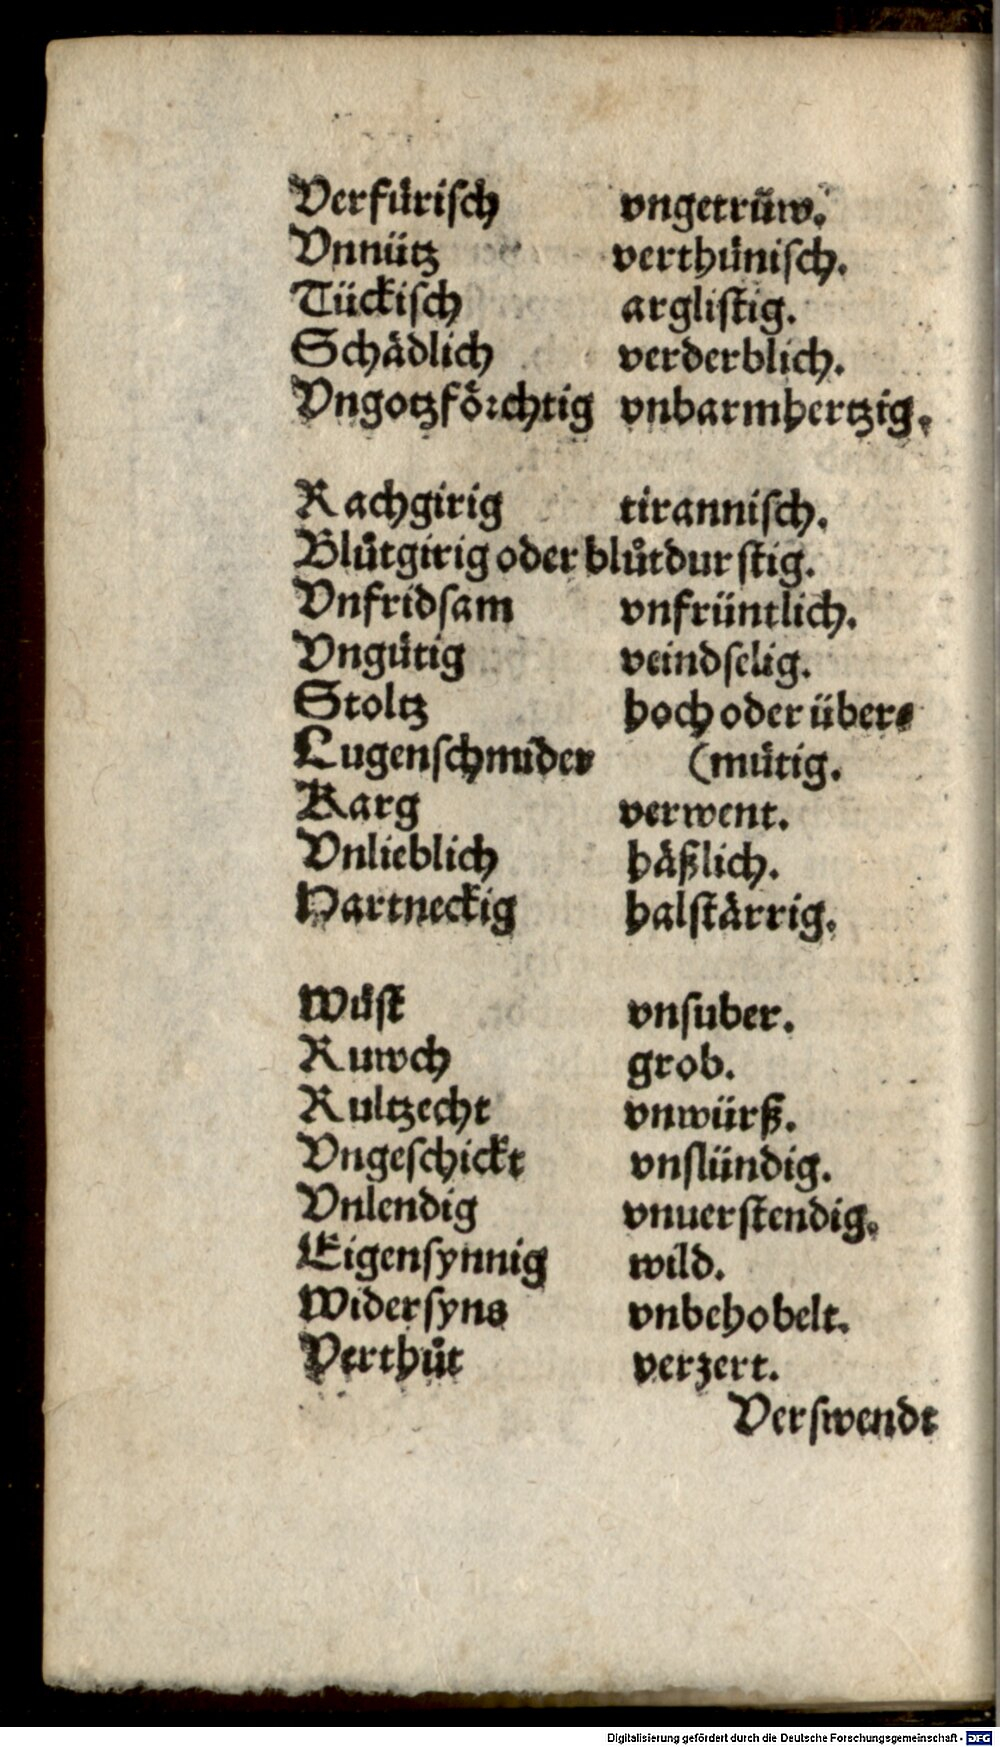 Verfürisch vngetrüw.
Vnnütz verthünisch.
Tückisch arglistig.
Schädlich verderblich.
Vngotzförchtig vnbarmhertzig.
Rachgirig tirannisch.
Blůtgirig oder blůtdurstig.
Vnfridsam vnfrüntlich.
Vngütig veindselig.
Stoltz hoch oder über⸗
Lugenschmider (mütig.
Karg verwent.
Vnlieblich häßlich.
Hartneckig halstärrig.
Wüst vnsuber.
Ruwch grob.
Rultzecht vnwürß.
Vngeschickt vnslündig.
Vnlendig vnuerstendig.
Eigensynnig wild.
Widersyns vnbehobelt.
Verthůt verzert.
Verswendt
Digitalisierung gefördert durch die Deutsche Forschungsgemeinschaft - DFG